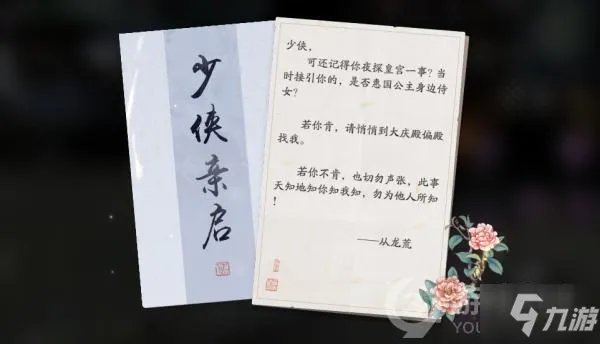 少侠亲启
少侠，
可还记得你夜探皇宫一事？当
时接引你的，是否惠国公主身边侍
女？
若你肯，请悄悄到大庆殿偏殿
找我。
若你不肯，也切勿声张，此事
天知地知你知我知，勿为他人所知
！
——从龙荒
九游